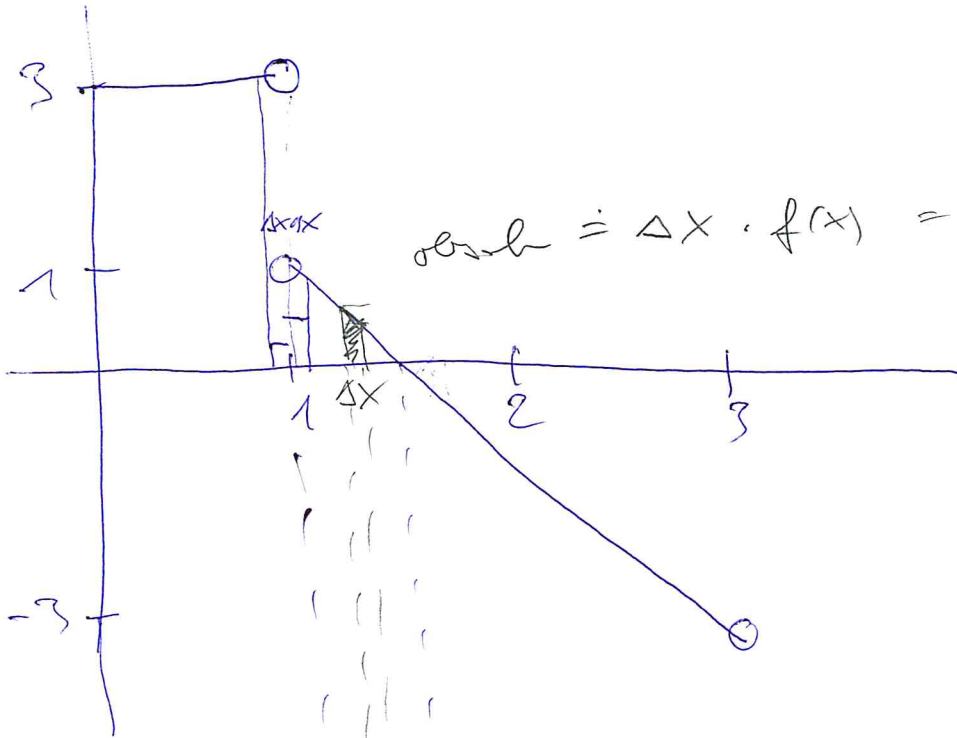 3
ΔxΔx
obsah ≐ Δx · f(x) =
1
1 Δx 2 3
-3